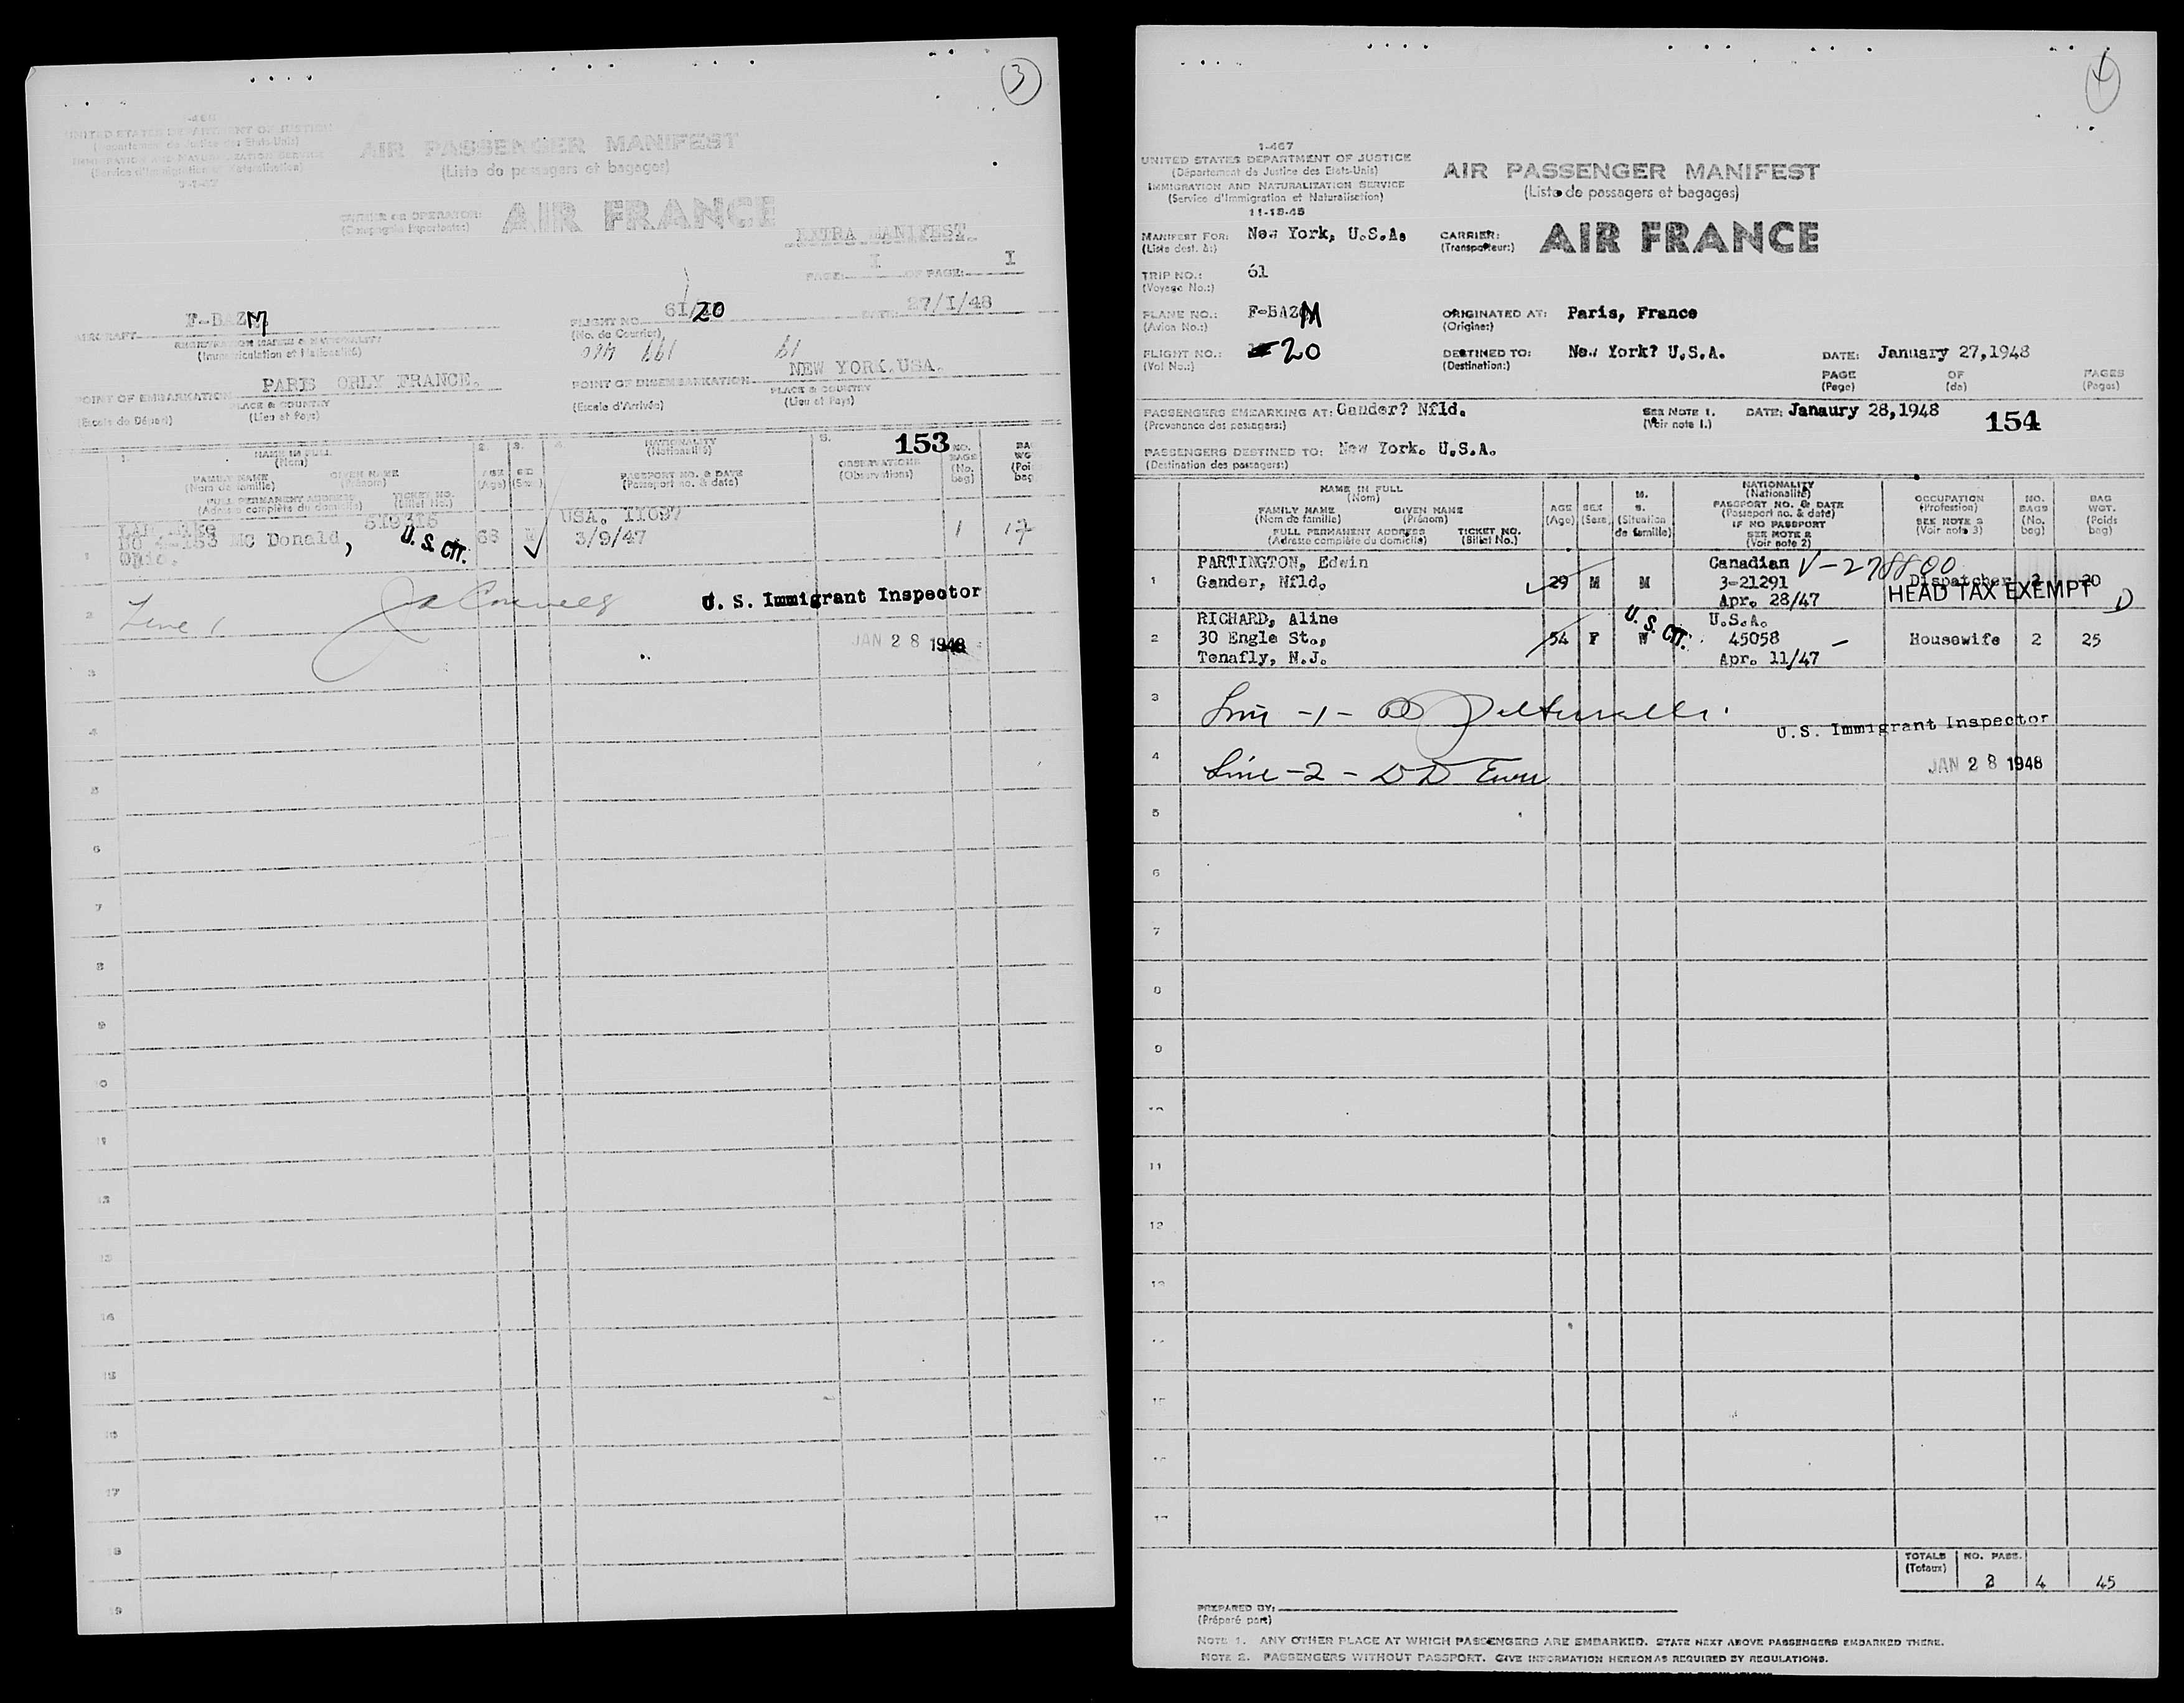 3
UNITED STATES DEPARTMENT OF JUSTICE
(Departement de Justice des Etats-Unis)
IMMIGRATION AND NATURALIZATION SERVICE
(Service d'Immigration et Naturalisation)
AIR PASSENGER MANIFEST
(Liste de passagers et bagages)
OWNER OR OPERATOR:
AIR FRANCE
EXTRA MANIFEST
PAGE: I OF PAGE: I
AIRCRAFT F-BAZM
REGISTRATION MARKS & NATIONALITY
(Immatriculation et Nationalité)
FLIGHT NO. 61/20
(No. de Courrier)
DATE: 27/I/48
POINT OF EMBARKATION PARIS ORLY FRANCE.
PLACE & COUNTRY
(Escale de Départ) (Lieu et Pays)
POINT OF DISEMBARKATION NEW YORK.USA.
PLACE & COUNTRY
(Escale d'Arrivée) (Lieu et Pays)
153
1. NAME IN FULL
(Nom)
FAMILY NAME GIVEN NAME
(Nom de famille) (Prénom)
FULL PERMANENT ADDRESS TICKET NO.
(Adresse complète du domicile) (Billet No.)
2. AGE
(Age)
3. SEX
(Sexe)
4. NATIONALITY
(Nationalité)
PASSPORT NO. & DATE
(Passeport no. & date)
5. OBSERVATIONS
(Observations)
NO. BAGS
(No. bag)
BAG WGT.
(Poi bag
1 519316
Mc Donald,
Ohio.
U. S. CIT.
68 M
USA. 11097
3/9/47
1 17
2 Line 1
U. S. Immigrant Inspector
JAN 28 1948
3
4
5
6
7
8
9
10
11
12
13
14
15
16
17
18
19
4
1-467
UNITED STATES DEPARTMENT OF JUSTICE
(Département de Justice des Etats-Unis)
IMMIGRATION AND NATURALIZATION SERVICE
(Service d'Immigration et Naturalisation)
11-18-48
AIR PASSENGER MANIFEST
(Liste de passagers et bagages)
MANIFEST FOR: New York, U.S.A.
(Liste dest. à:)
CARRIER: AIR FRANCE
(Transporteur:)
TRIP NO.: 61
(Voyage No.:)
PLANE NO.: F-BAZM
(Avion No.:)
ORIGINATED AT: Paris, France
(Origine:)
FLIGHT NO.: 20
(Vol No.:)
DESTINED TO: New York? U.S.A.
(Destination:)
DATE: January 27,1948
PAGE OF PAGES
(Page) (de) (Pages)
PASSENGERS EMBARKING AT: Gander? Nfld.
(Provenance des passagers:)
SEE NOTE 1.
(Voir note 1.)
DATE: Janaury 28,1948
154
PASSENGERS DESTINED TO: New York. U.S.A.
(Destination des passagers:)
NAME IN FULL
(Nom)
FAMILY NAME GIVEN NAME
(Nom de famille) (Prénom)
FULL PERMANENT ADDRESS TICKET NO.
(Adresse complète du domicile) (Billet No.)
AGE
(Age)
SEX
(Sexe)
M.
S.
(Situation de famille)
NATIONALITY
(Nationalité)
PASSPORT NO. & DATE
(Passeport no. & date)
IF NO PASSPORT
SEE NOTE 2
(Voir note 2)
OCCUPATION
(Profession)
SEE NOTE 3
(Voir note 3)
NO. BAGS
(No. bag)
BAG WGT.
(Poids bag)
1 PARTINGTON, Edwin
Gander, Nfld.
29 M M
Canadian V-278800
3-21291
Apr. 28/47
Dispatcher 2 20
HEAD TAX EXEMPT
2 RICHARD, Aline
30 Engle St.,
Tenafly, N.J.
54 F W
U. S. CIT.
U.S.A.
45058
Apr. 11/47
Housewife 2 25
3 Line -1-
U.S. Immigrant Inspector
4 Line -2-
JAN 28 1948
5
6
7
8
9
11
12
TOTALS NO. PASS.
(Totaux) 2 4 45
PREPARED BY:
(Préparé par:)
NOTE 1. ANY OTHER PLACE AT WHICH PASSENGERS ARE EMBARKED. STATE NEXT ABOVE PASSENGERS EMBARKED THERE.
NOTE 2. PASSENGERS WITHOUT PASSPORT. GIVE INFORMATION HEREON AS REQUIRED BY REGULATIONS.